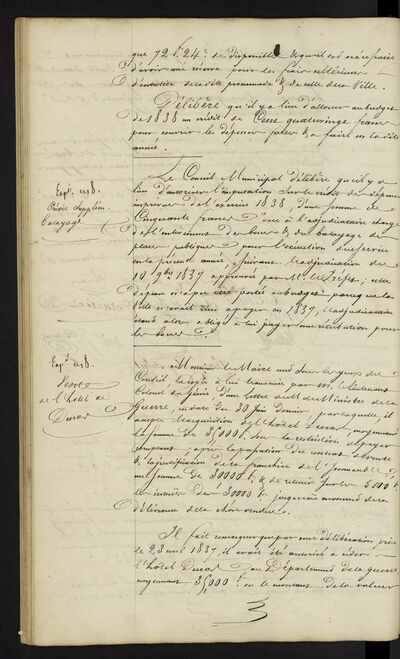 que 72 f. 24 c. de disponible & qu'il est nécessaire
d'avoir une réserve pour les frais ultérieurs
d'entretien de la dite pommade & de celle de la Ville.
Délibère qu'il y a lieu d'allouer au budget
de 1838 un crédit de Cent quatrevingts francs
pour couvrir les dépenses faites & à faire en la dite
année.
Expé. crs 8.
Crédit Supplém.
Balayage
Le Conseil Municipal délibère qu'il y a
lieu d'autoriser l'imputation sur le crédit des dépenses
imprévues de l'exercice 1838 d'une somme de
Cinquante francs due à l'adjudicataire chargé
de l'entretien des boues & du balayage des
places publiques pour l'exécution du service
en la présente année, suivant l'adjudication du
10 9bre 1837 approuvé par M. le Préfet; cette
dépense n'a pas été portée au budget parce que la
Ville n'avait rien à payer en 1837, l'adjudicataire
étant alors obligé à lui payer une rétribution pour
les boues.
Expé. crs 8.
Vente
de l'hôtel de
Duras
Monsieur le Maire met sous les yeux du
Conseil, la copie à lui transmise par M. le Lieutenant
Colonel du Génie, d'une lettre de M. le Ministre de la
Guerre, en date du 30 juin dernier, par laquelle il
accepte l'acquisition de l'hôtel Duras, moyennant
la somme de 35,000 f. sous la restriction de payer
comptant, après la passation du contrat de vente
& la justification de la franchise de l'Immeuble
une somme de 30000 f. & de retenir sur les 5000 f.
les intérêts des 30000 f. jusqu'au moment de la
délivrance de la chose vendue.
Il fait remarquer que par une délibération prise
le 23 mai 1837, il avait été autorisé à céder
l'hôtel Duras au Département de la guerre
moyennant 35,000 f. ou le montant de la valeur